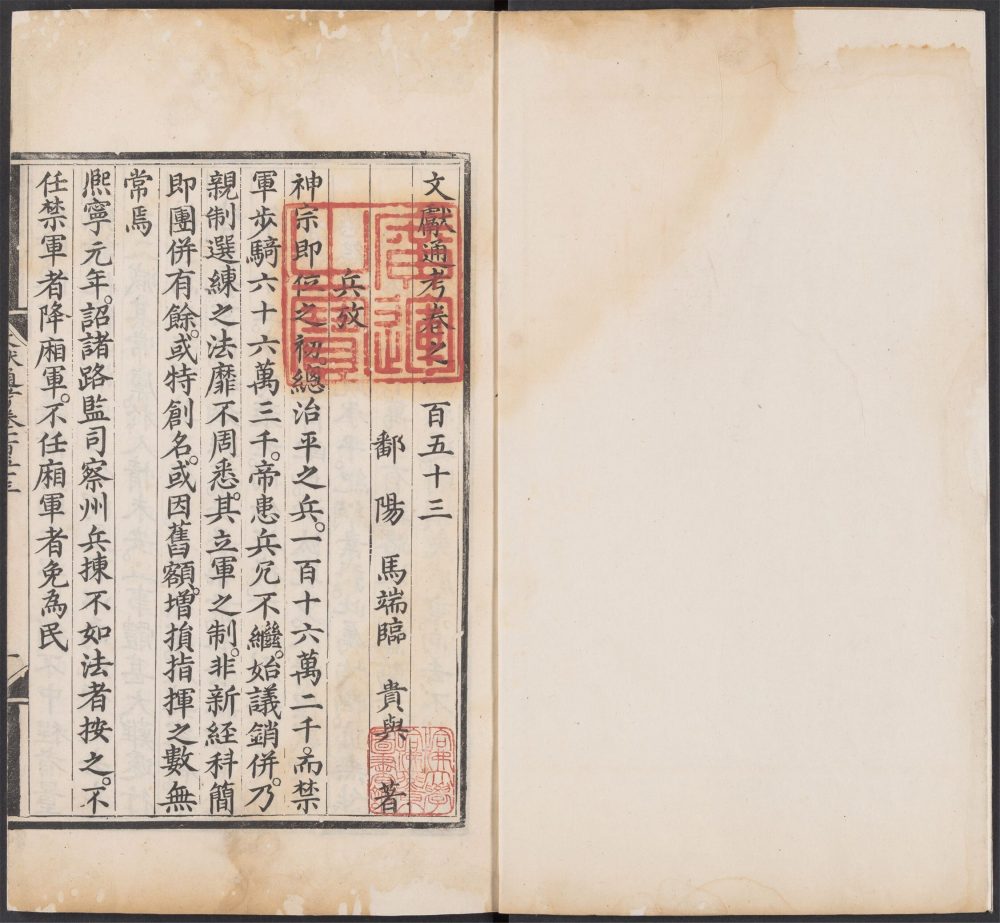 文獻通考卷之一百五十三
鄱陽馬端臨貴與著
兵攷
神宗即位之初總治平之兵。一百十六萬二千。而禁
軍步騎六十六萬三千。帝患兵冗不繼。始議銷併。乃
親制選練之法靡不周悉。其立軍之制。非新経科簡
即團併有餘。或特創名。或因舊額。增損指揮之數無
常焉
熈寧元年。詔諸路監司察州兵揀不如法者按之。不
任禁軍者降廂軍。不任廂軍者免為民